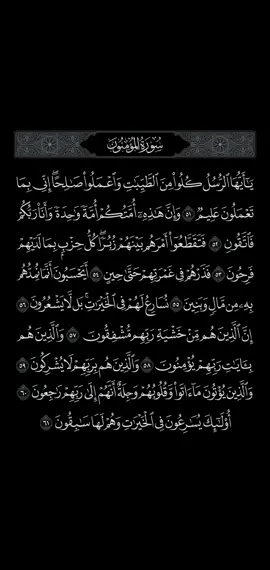 سُورَةُ المُؤْمِنُونَ
يَـٰٓأَيُّهَا ٱلرُّسُلُ كُلُوا۟ مِنَ ٱلطَّيِّبَـٰتِ وَٱعْمَلُوا۟ صَـٰلِحًا ۖ إِنِّى بِمَا
تَعْمَلُونَ عَلِيمٌ ٥١ وَإِنَّ هَـٰذِهِۦٓ أُمَّتُكُمْ أُمَّةً وَٰحِدَةً وَأَنَا۠ رَبُّكُمْ
فَٱتَّقُونِ ٥٢ فَتَقَطَّعُوٓا۟ أَمْرَهُم بَيْنَهُمْ زُبُرًا ۖ كُلُّ حِزْبٍۭ بِمَا لَدَيْهِمْ
فَرِحُونَ ٥٣ فَذَرْهُمْ فِى غَمْرَتِهِمْ حَتَّىٰ حِينٍ ٥٤ أَيَحْسَبُونَ أَنَّمَا نُمِدُّهُم
بِهِۦ مِن مَّالٍ وَبَنِينَ ٥٥ نُسَارِعُ لَهُمْ فِى ٱلْخَيْرَٰتِ ۚ بَل لَّا يَشْعُرُونَ ٥٦
إِنَّ ٱلَّذِينَ هُم مِّنْ خَشْيَةِ رَبِّهِم مُّشْفِقُونَ ٥٧ وَٱلَّذِينَ هُم
بِـَٔايَـٰتِ رَبِّهِمْ يُؤْمِنُونَ ٥٨ وَٱلَّذِينَ هُم بِرَبِّهِمْ لَا يُشْرِكُونَ ٥٩
وَٱلَّذِينَ يُؤْتُونَ مَآ ءَاتَوا۟ وَّقُلُوبُهُمْ وَجِلَةٌ أَنَّهُمْ إِلَىٰ رَبِّهِمْ رَٰجِعُونَ ٦٠
أُو۟لَـٰٓئِكَ يُسَـٰرِعُونَ فِى ٱلْخَيْرَٰتِ وَهُمْ لَهَا سَـٰبِقُونَ ٦١